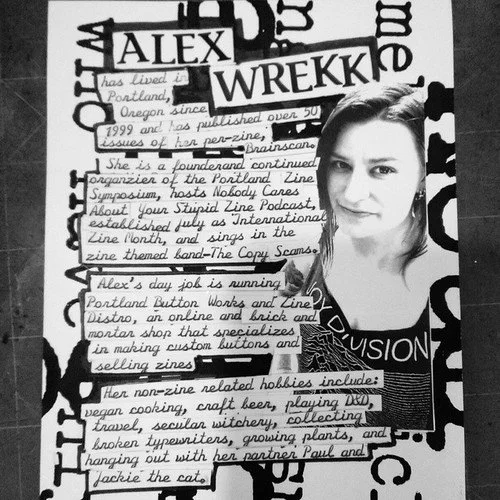 ALEX
WREKK
has lived in
Portland,
Oregon since
1999 and has published over 50
issues of her per-zine,
Brainscan.
She is a founderand continued
organzier of the Portland Zine
Symposium, hosts Nobody Cares
About Your Stupid Zine Podcast,
established July as International
Zine Month, and sings in the
zine themed band-The Copy Scams.
Alex's day job is running
Portland Button Works and Zine
Distro, an online and brick and
mortar shop that specializes
in making custom buttons and
selling zines
Her non-zine related hobbies include:
vegan cooking, craft beer, playing D&D,
travel, secular witchery, collecting
broken typewriters, growing plants, and
hanging out with her partner Paul and
Jackie the cat.
OY DIVISION